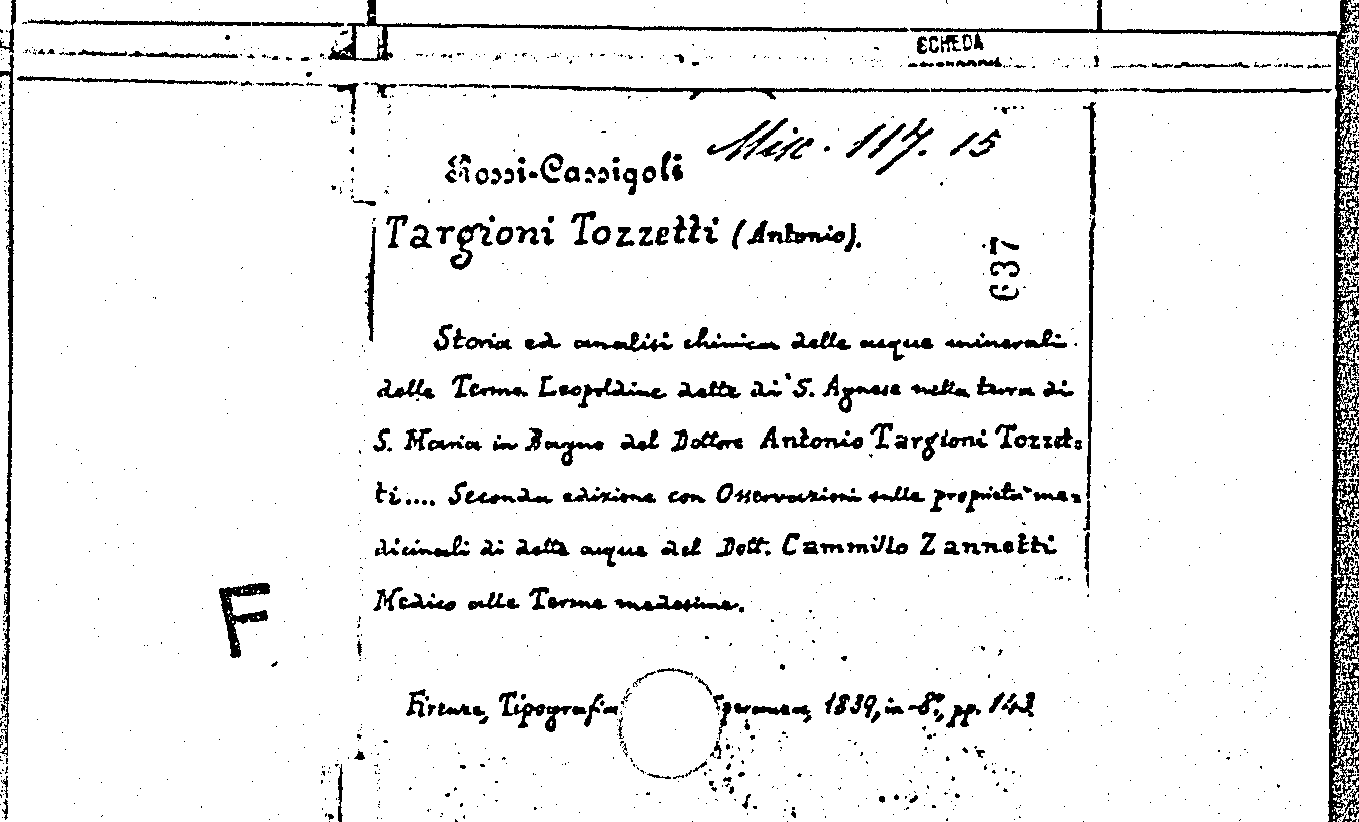 SCHEDA
Misc. 117. 15
Rossi-Cassigoli
Targioni Tozzetti (Antonio).
637
Storia ed analisi chimica delle acque minerali
delle Terme Leopoldine dette di S. Agnese nella terra di
S. Maria in Bagno del Dottore Antonio Targioni Tozzet=
ti.... Seconda edizione con Osservazioni sulle proprietà me=
dicinali di dette acque del Dott. Cammillo Zannetti
Medico alle Terme medesime.
F
Firenze, Tipografia Speranza, 1839, in-8º, pp. 142